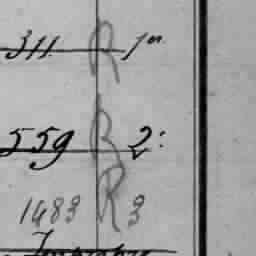 311 R 1m
559 R 2:
1483 R 3